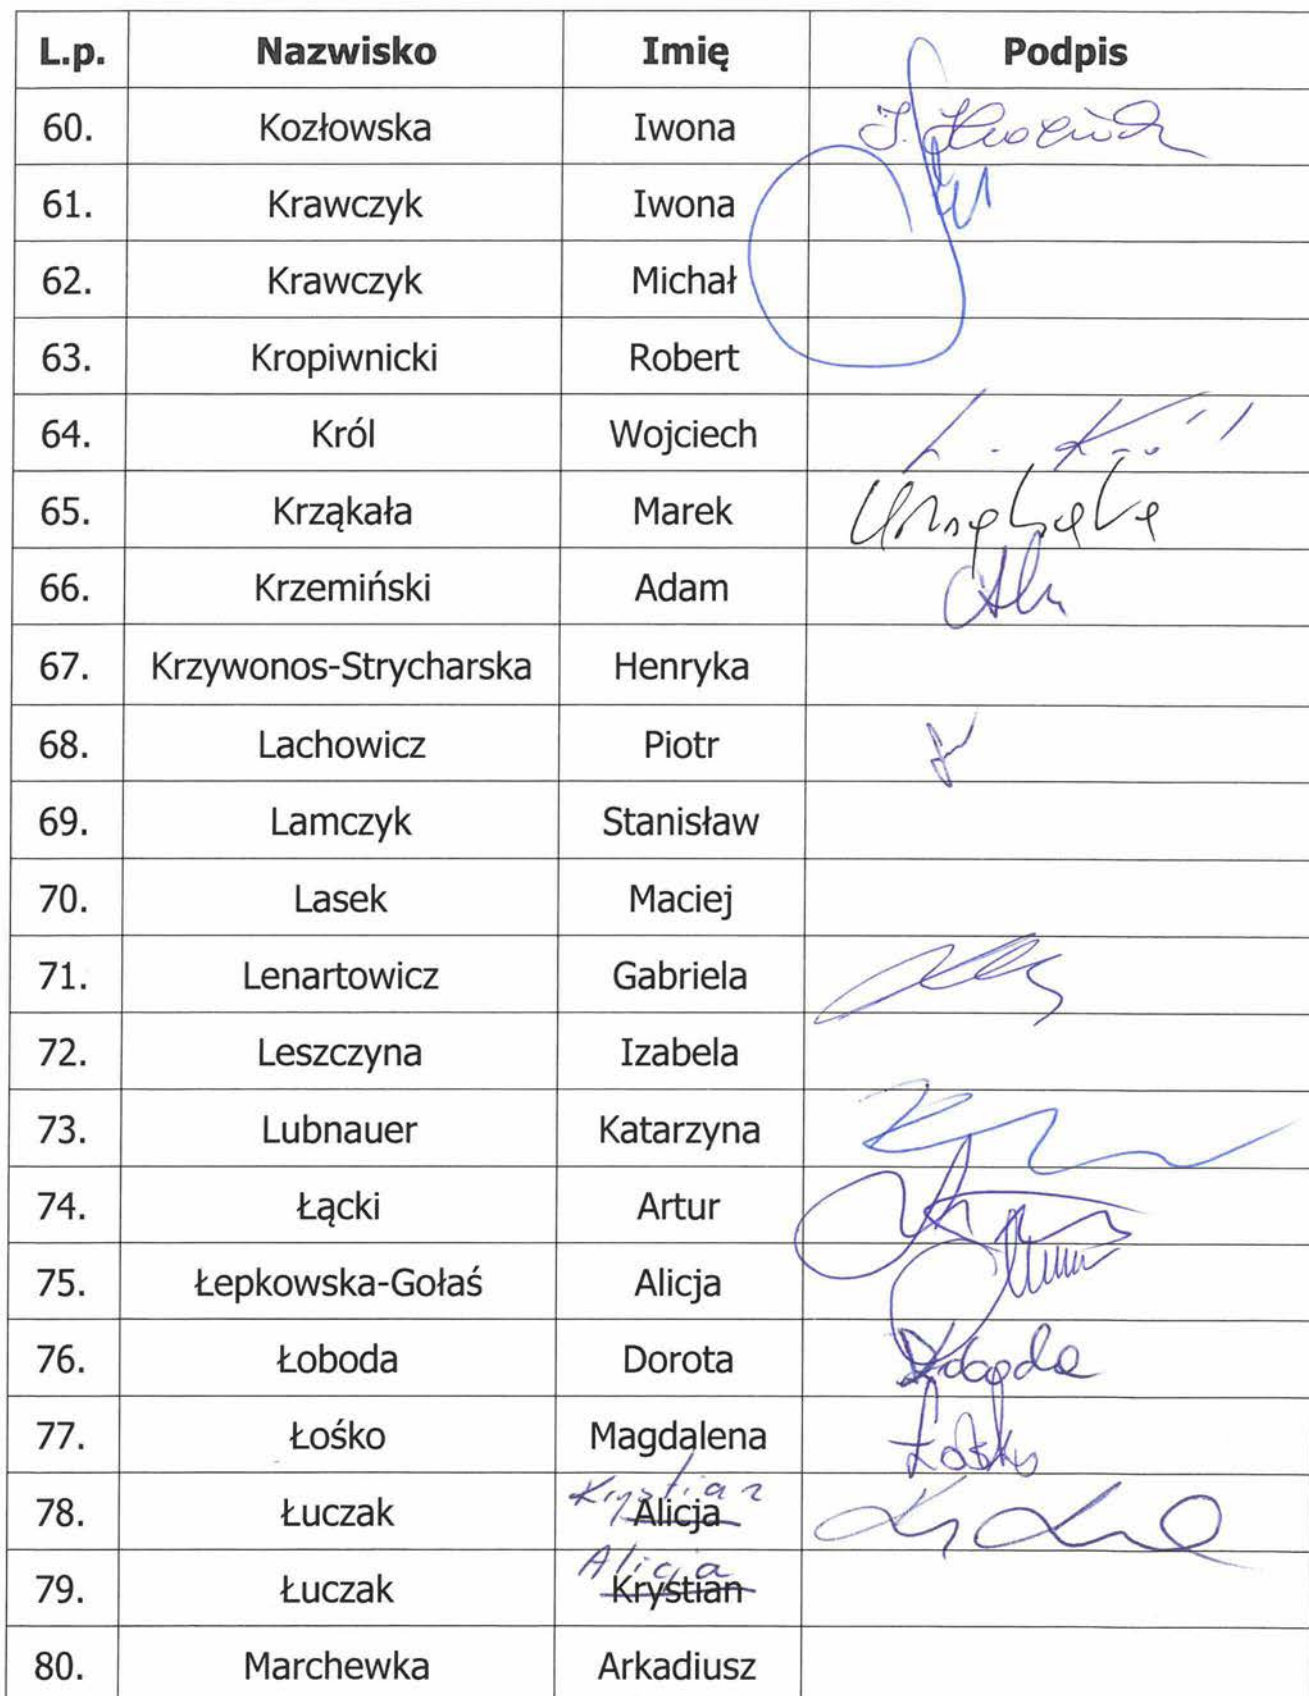 L.p. Nazwisko Imię Podpis
60. Kozłowska Iwona
61. Krawczyk Iwona
62. Krawczyk Michał
63. Kropiwnicki Robert
64. Król Wojciech
65. Krząkała Marek
66. Krzemiński Adam
67. Krzywonos-Strycharska Henryka
68. Lachowicz Piotr
69. Lamczyk Stanisław
70. Lasek Maciej
71. Lenartowicz Gabriela
72. Leszczyna Izabela
73. Lubnauer Katarzyna
74. Łącki Artur
75. Łepkowska-Gołaś Alicja
76. Łoboda Dorota
77. Łośko Magdalena
Krystian
78. Łuczak Alicja
Alicja
79. Łuczak Krystian
80. Marchewka Arkadiusz